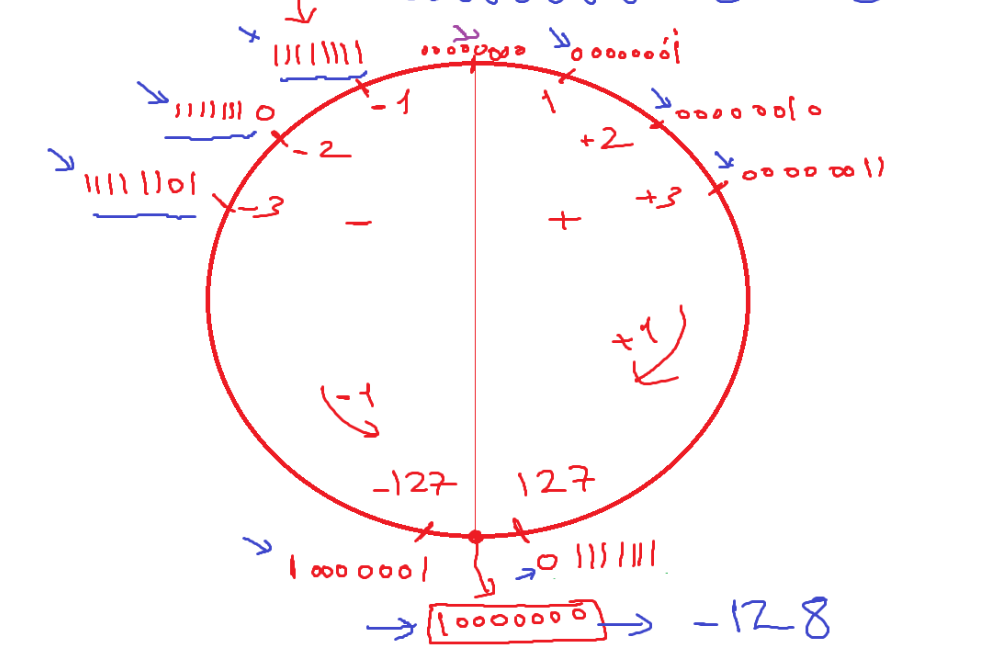 11111111 00000000 00000001
-1 1
11111110 00000010
-2 +2
11111101 00000011
-3 +3
- +
+1
-1
-127 127
10000001 01111111
10000000 -128